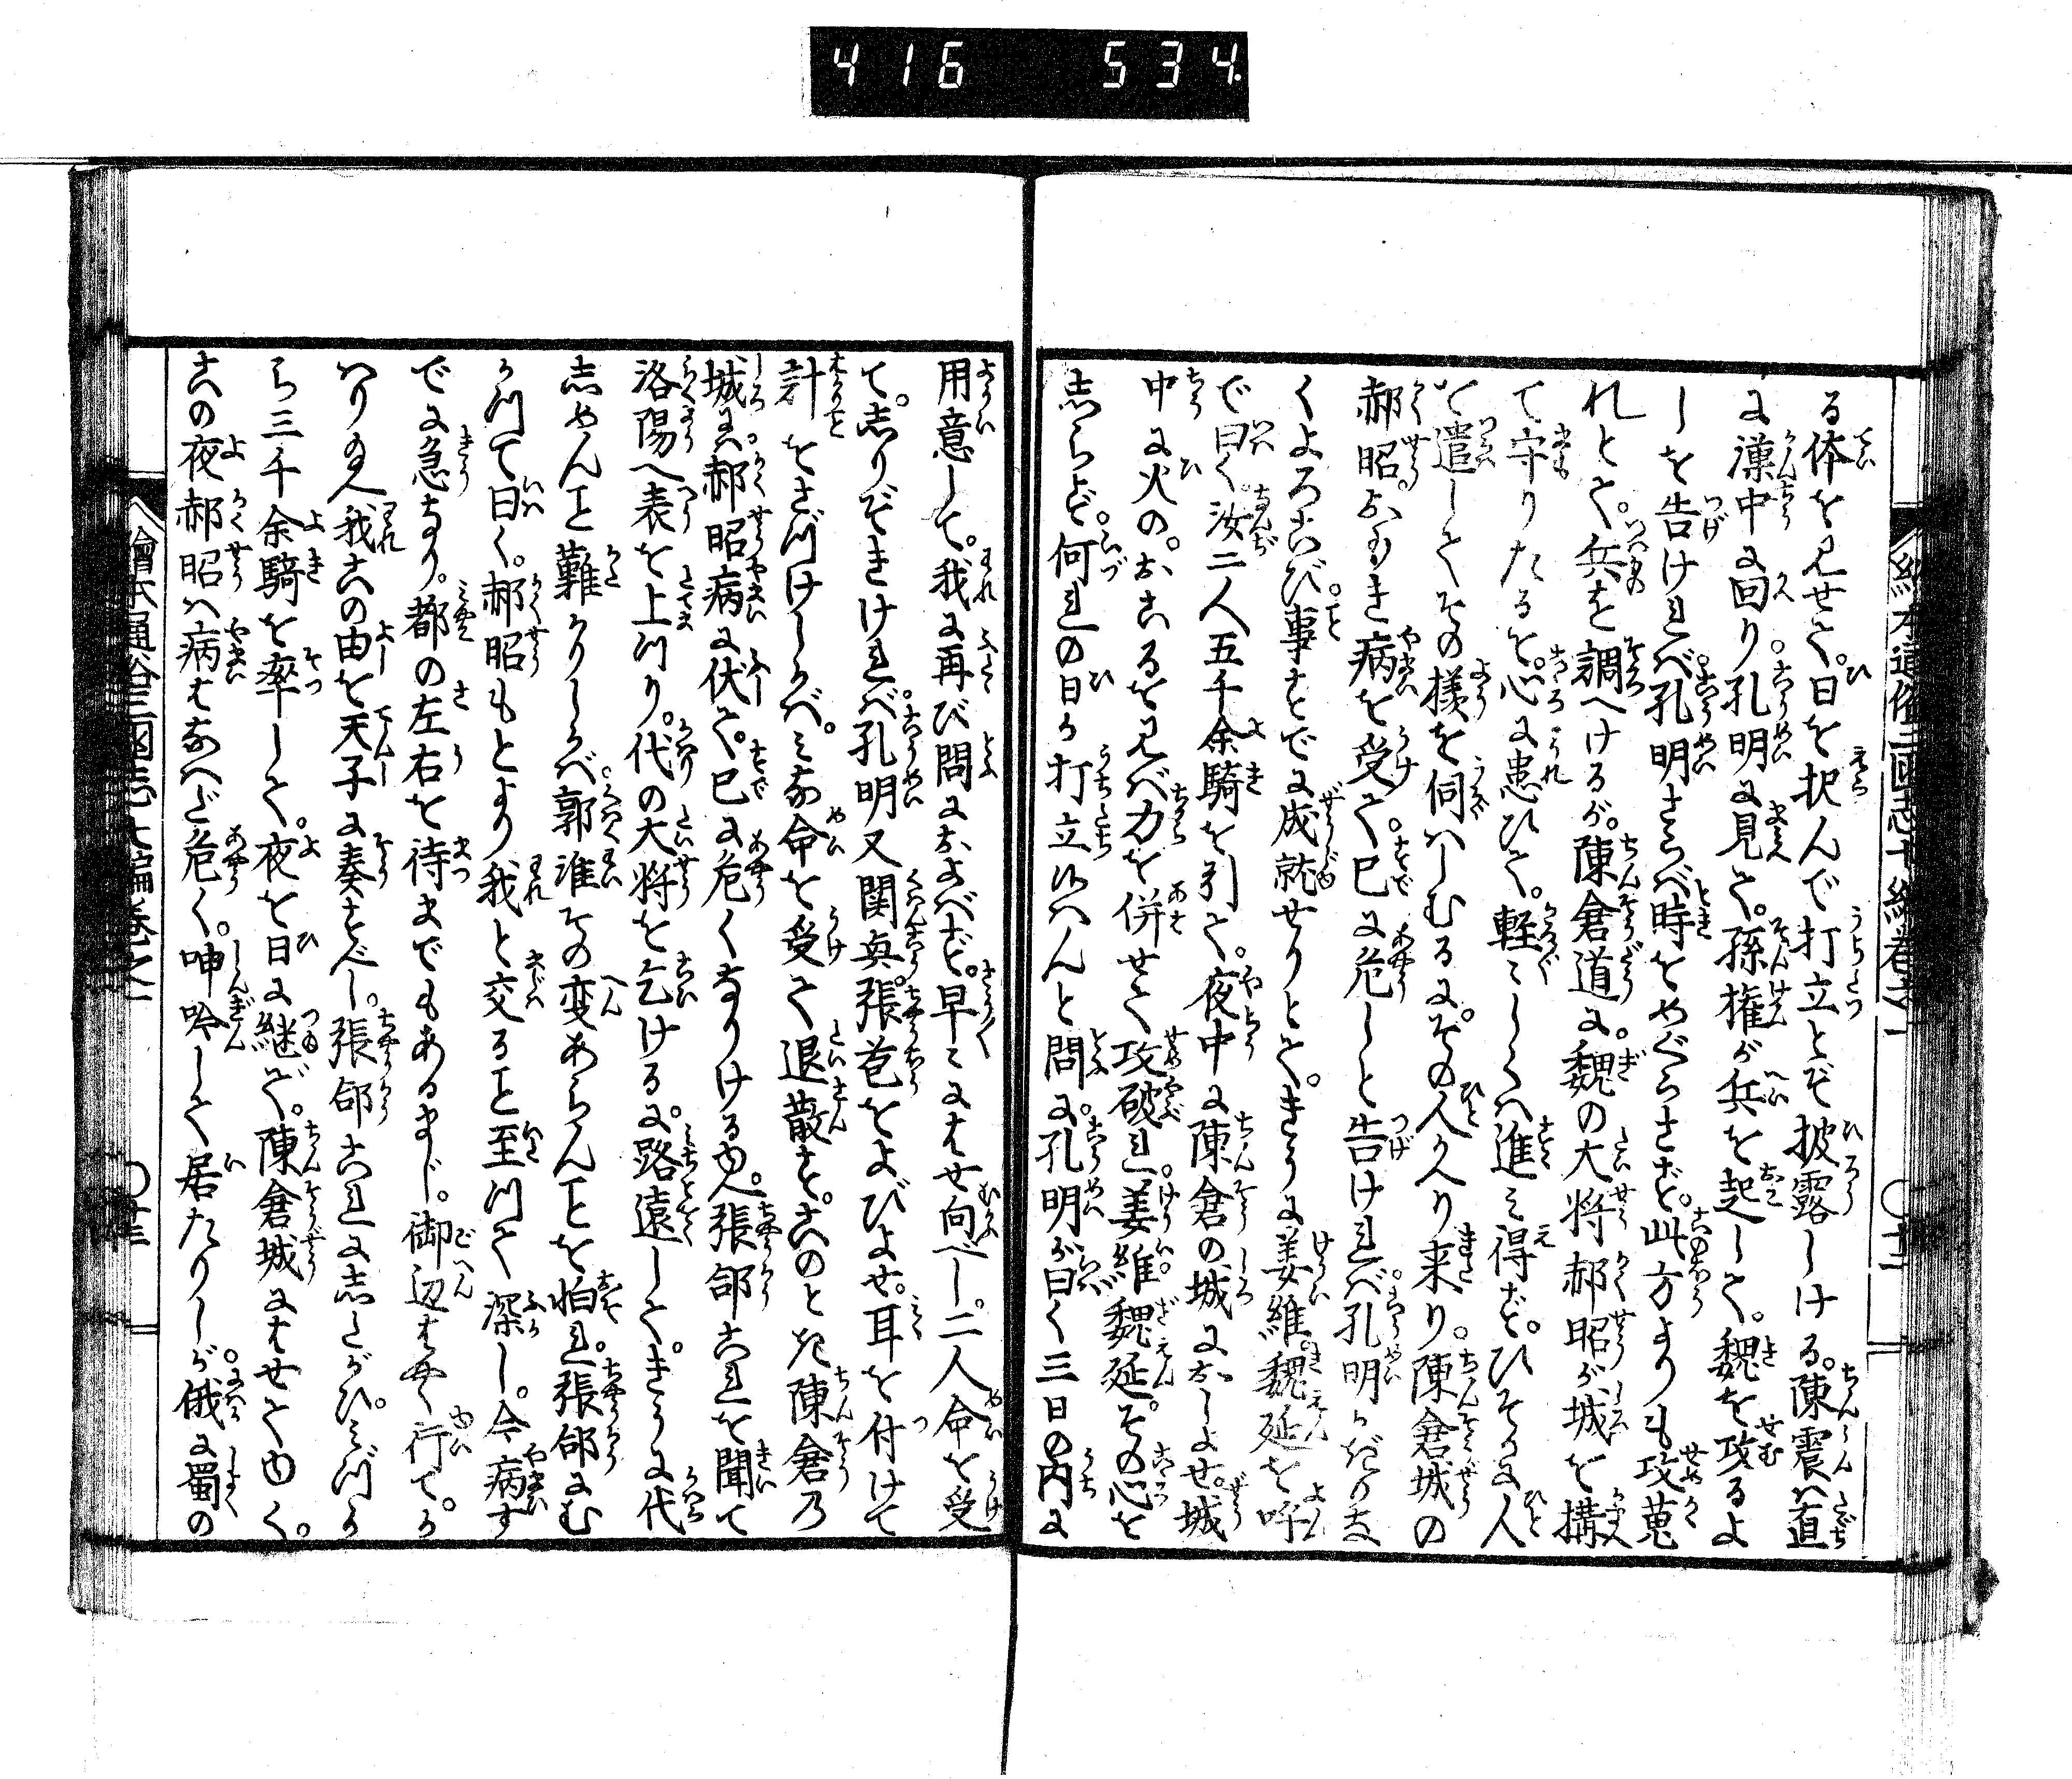 416 534.
る体を見せて。日を択んで打立とぞ披露しける。陳震ハ直
に漢中に回り孔明に見て。孫権が兵を起して。魏を攻るよ
しを告けれバ。孔明さらバ時をめぐらさず。此方よりも攻蒐
れとて。兵を調へけるが。陳倉道に。魏の大将郝昭が城を構
て守りたるを。心に患ひて。軽〻しくハ進ミ得ず。ひそかに人
を遣してその様を伺ハしむるに。その人かへり来り。陳倉城の
郝昭。おもき病を受て。已に危しと告けれバ。孔明かぎりな
くよろこび。事すでに成就せりとて。きうに姜維。魏延を呼
で曰く。汝二人五千余騎を引て。夜中に陳倉の城におしよせ。城
中に火の。おこるを見バ力を併せて攻破れ。姜維。魏延。その心を
志らず。何れの日か打立候ハんと問に。孔明が曰く三日の内に
用意して。我に再び問におよバず。早〻にはせ向べし。二人命を受
て。志りぞきけれバ。孔明又関興。張苞をよびよせ。耳を付けて
計をさづけしかバ。ミな命を受て退散す。このとき陳倉乃
城にハ。郝昭病に伏て。已に危くなりけるゆへ。張郃これを聞て
洛陽へ表を上つり。代の大将を乞けるに。路遠して。きうに代
志めんこと難かりしかバ。郭淮その変あらんことを怕れ。張郃にむ
かつて曰く。郝昭もとより我と交ること至つて深し。今病す
でに急なり。都の左右を待までもあるまじ。御辺はやく行て。か
ハり給へ我この由を天子に奏すべし。張郃これに志たがひ。ミづか
ら三千余騎を率して。夜を日に継で。陳倉城にはせてゆく。
この夜郝昭ハ病はなハだ危く。呻吟して居たりしが。俄に蜀の